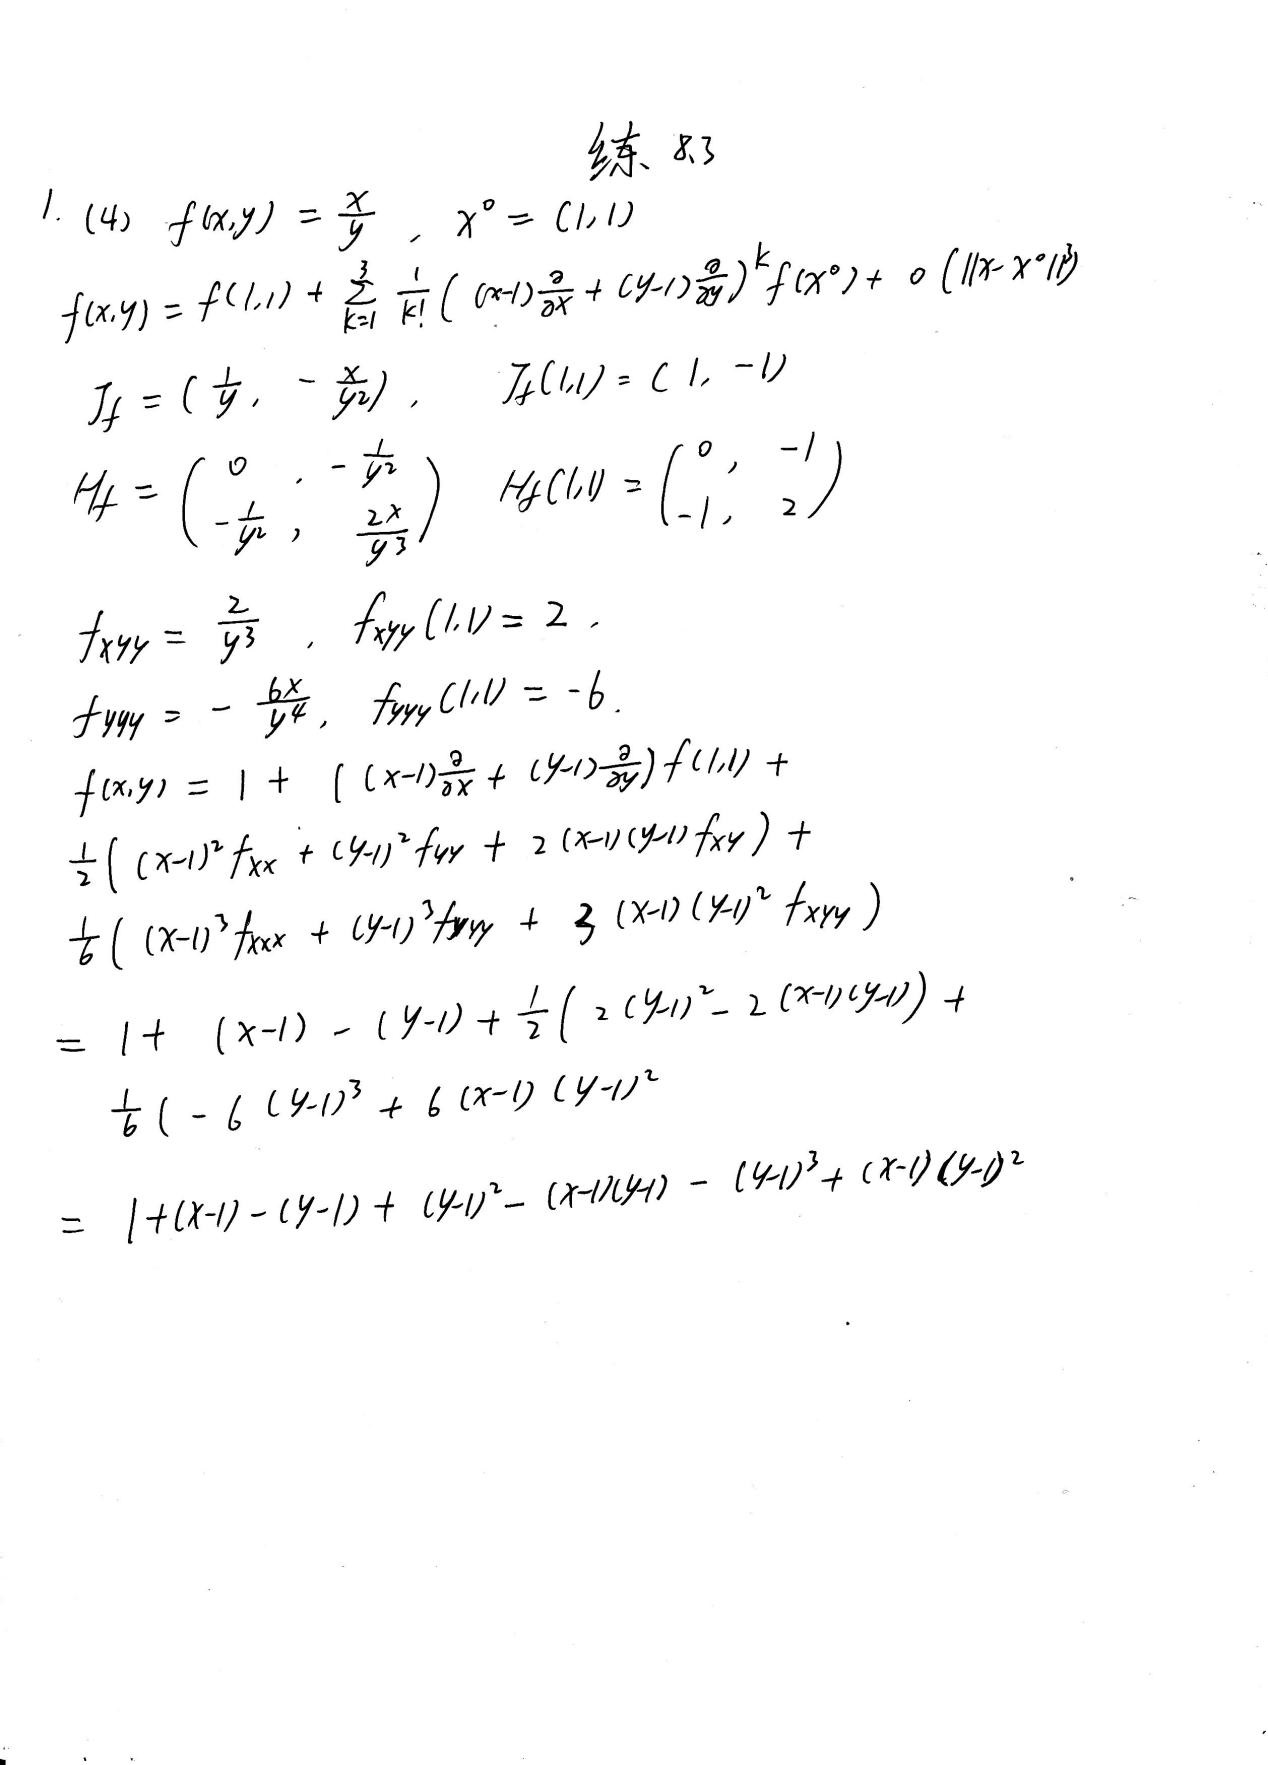 练 8.3
1. (4) f(x,y) = x/y , x⁰ = (1,1)
f(x,y) = f(1,1) + ∑_{k=1}^{3} 1/k! ( (x-1) ∂/∂x + (y-1) ∂/∂y )^k f(x⁰) + o (||x-x⁰||³)
J_f = ( 1/y , - x/y² ) , J_f(1,1) = ( 1, -1)
H_f = ( 0 , - 1/y² ; - 1/y² , 2x/y³ ) H_f(1,1) = ( 0 , -1 ; -1, 2 )
f_xyy = 2/y³ , f_xyy (1,1) = 2 .
f_yyy = - 6x/y⁴ , f_yyy (1,1) = -6 .
f(x,y) = 1 + ( (x-1) ∂/∂x + (y-1) ∂/∂y ) f(1,1) +
1/2 ( (x-1)² f_xx + (y-1)² f_yy + 2 (x-1)(y-1) f_xy ) +
1/6 ( (x-1)³ f_xxx + (y-1)³ f_yyy + 3 (x-1) (y-1)² f_xyy )
= 1 + (x-1) - (y-1) + 1/2 ( 2 (y-1)² - 2 (x-1)(y-1) ) +
1/6 ( - 6 (y-1)³ + 6 (x-1) (y-1)²
= 1+(x-1) - (y-1) + (y-1)² - (x-1)(y-1) - (y-1)³ + (x-1) (y-1)²